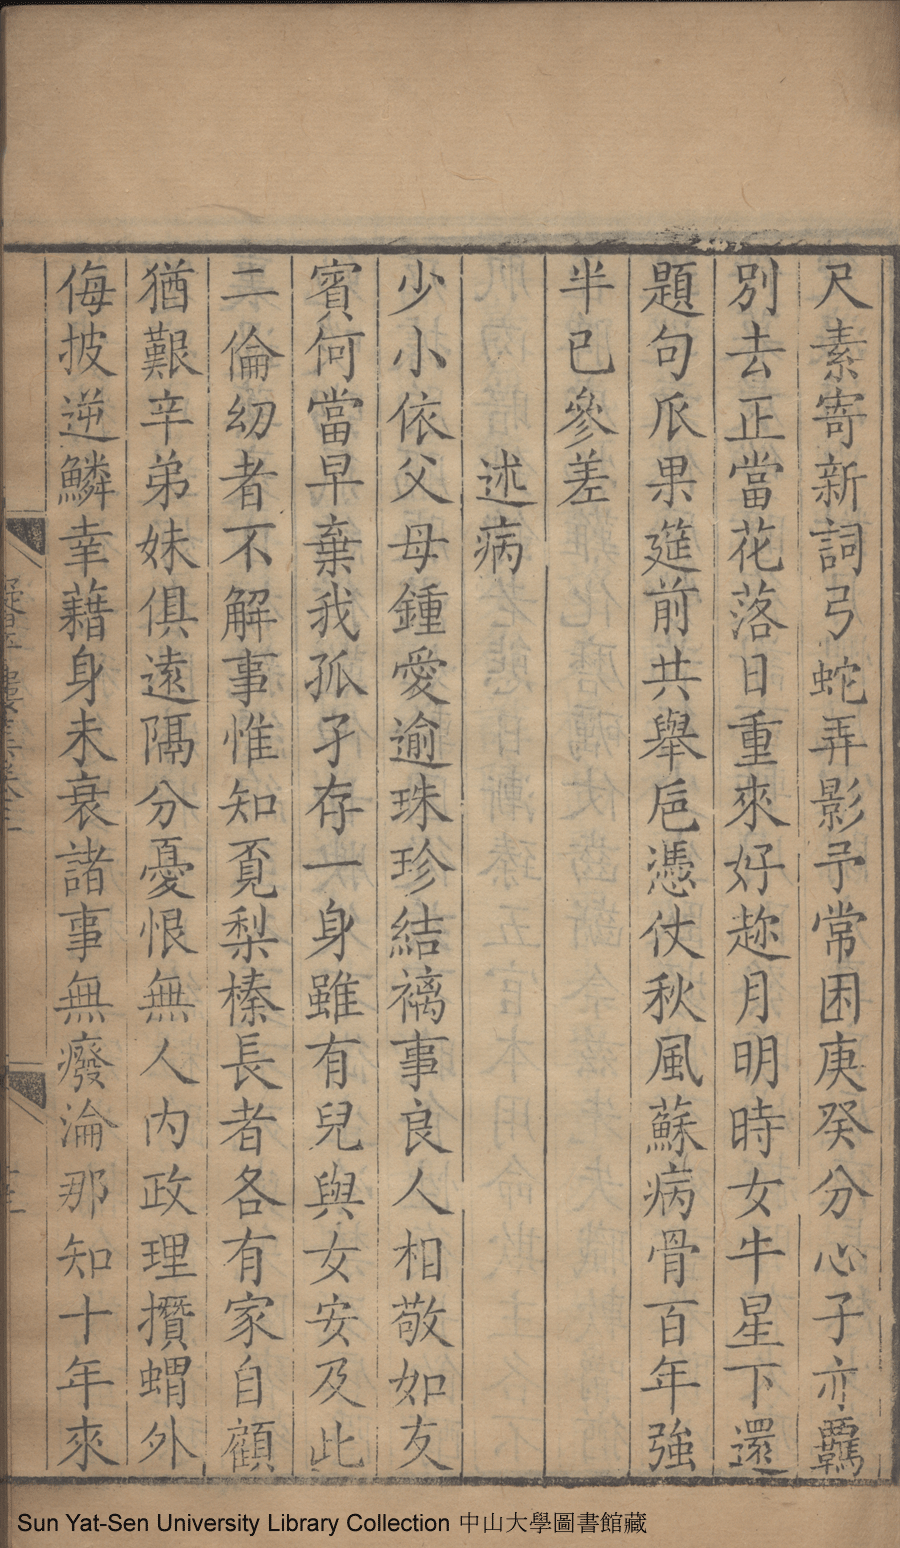 尺素寄新詞弓蛇弄影予常困庚癸分心子亦羈
別去正當花落日重來好趂月明時女牛星下還
題句瓜果筵前共舉巵憑仗秋風蘇病骨百年強
半已參差
述病
少小依父母鍾愛逾珠珍結褵事良人相敬如友
賓何當早棄我孤孑存一身雖有兒與女安及此
二倫幼者不解事惟知覔梨榛長者各有家自顧
猶艱辛弟妹俱遠隔分憂恨無人內政理攢蝟外
侮披逆鱗幸藉身未衰諸事無癈淪那知十年來
Sun Yat-Sen University Library Collection 中山大學圖書館藏